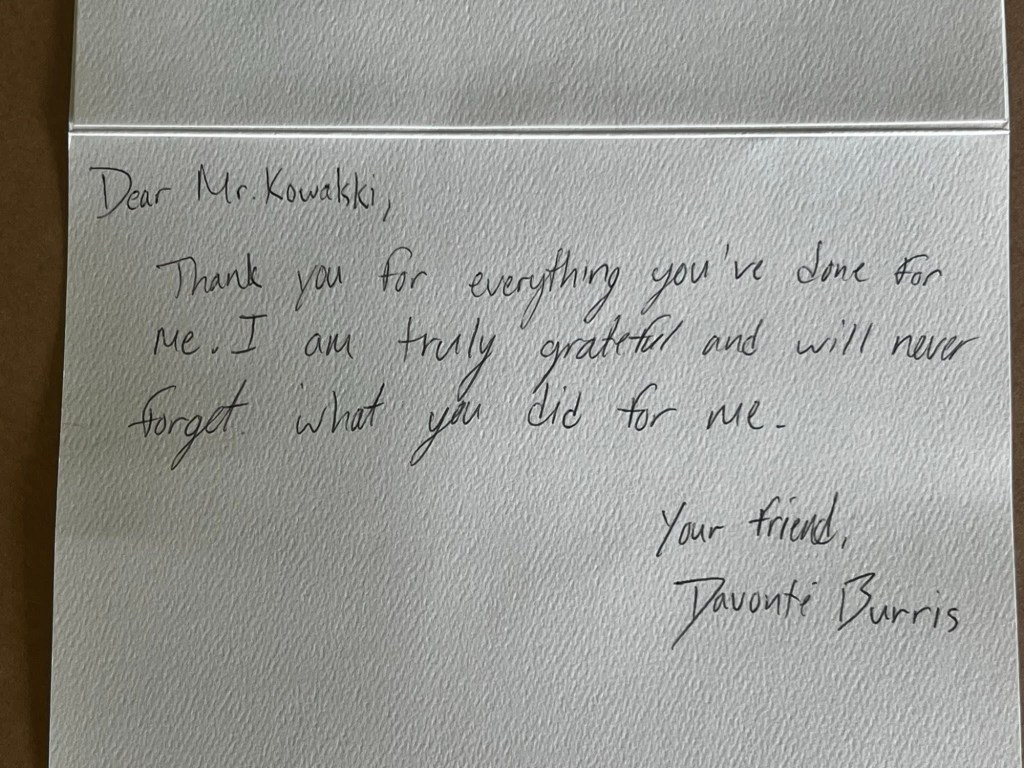 Dear Mr. Kowalski,
Thank you for everything you've done for
me. I am truly grateful and will never
forget what you did for me.
Your friend,
Davonté Burris